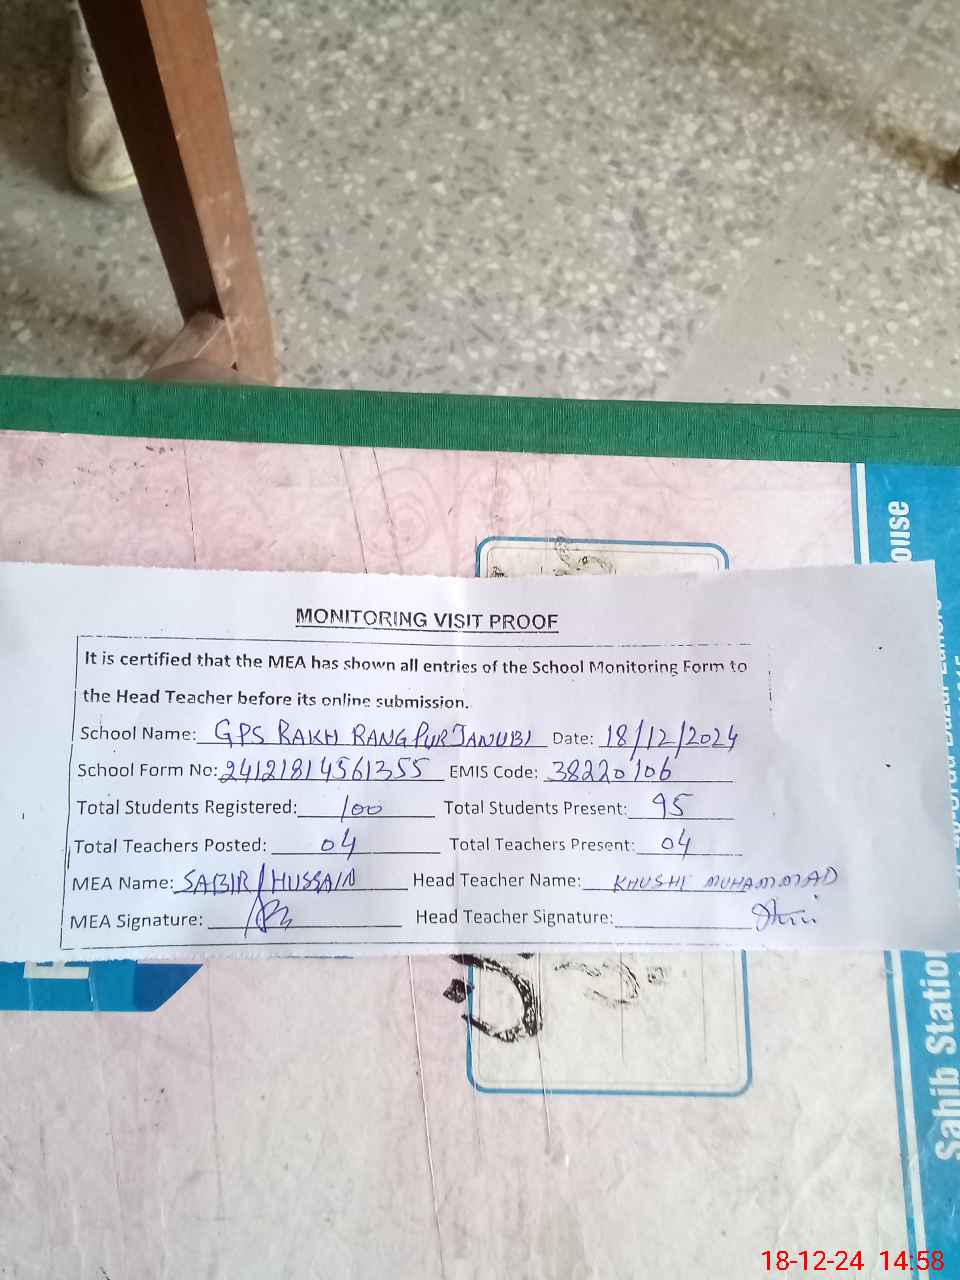 ouse
MONITORING VISIT PROOF
It is certified that the MEA has shown all entries of the School Monitoring Form to
the Head Teacher before its online submission.
School Name: GPS RAKH RANGPUR JANUBI Date: 18/12/2024
School Form No: 24121814561355 EMIS Code: 38220106
Total Students Registered: 100 Total Students Present: 95
Total Teachers Posted: 04 Total Teachers Present: 04
MEA Name: SABIR HUSSAIN Head Teacher Name: KHUSHI MUHAMMAD
MEA Signature: Head Teacher Signature:
Sahib Station
18-12-24 14:58